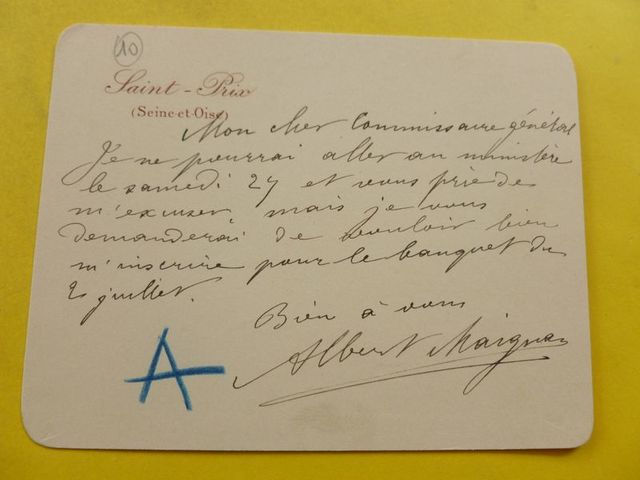 10
Saint-Prix
(Seine-et-Oise)
Mon cher Commissaire général
Je ne pourrai aller au ministère
le samedi 27 et vous prie de
m'excuser, mais je vous
demanderai de vouloir bien
m'inscrire pour le banquet du
2 juillet.
Bien à vous
Albert Maignan
A